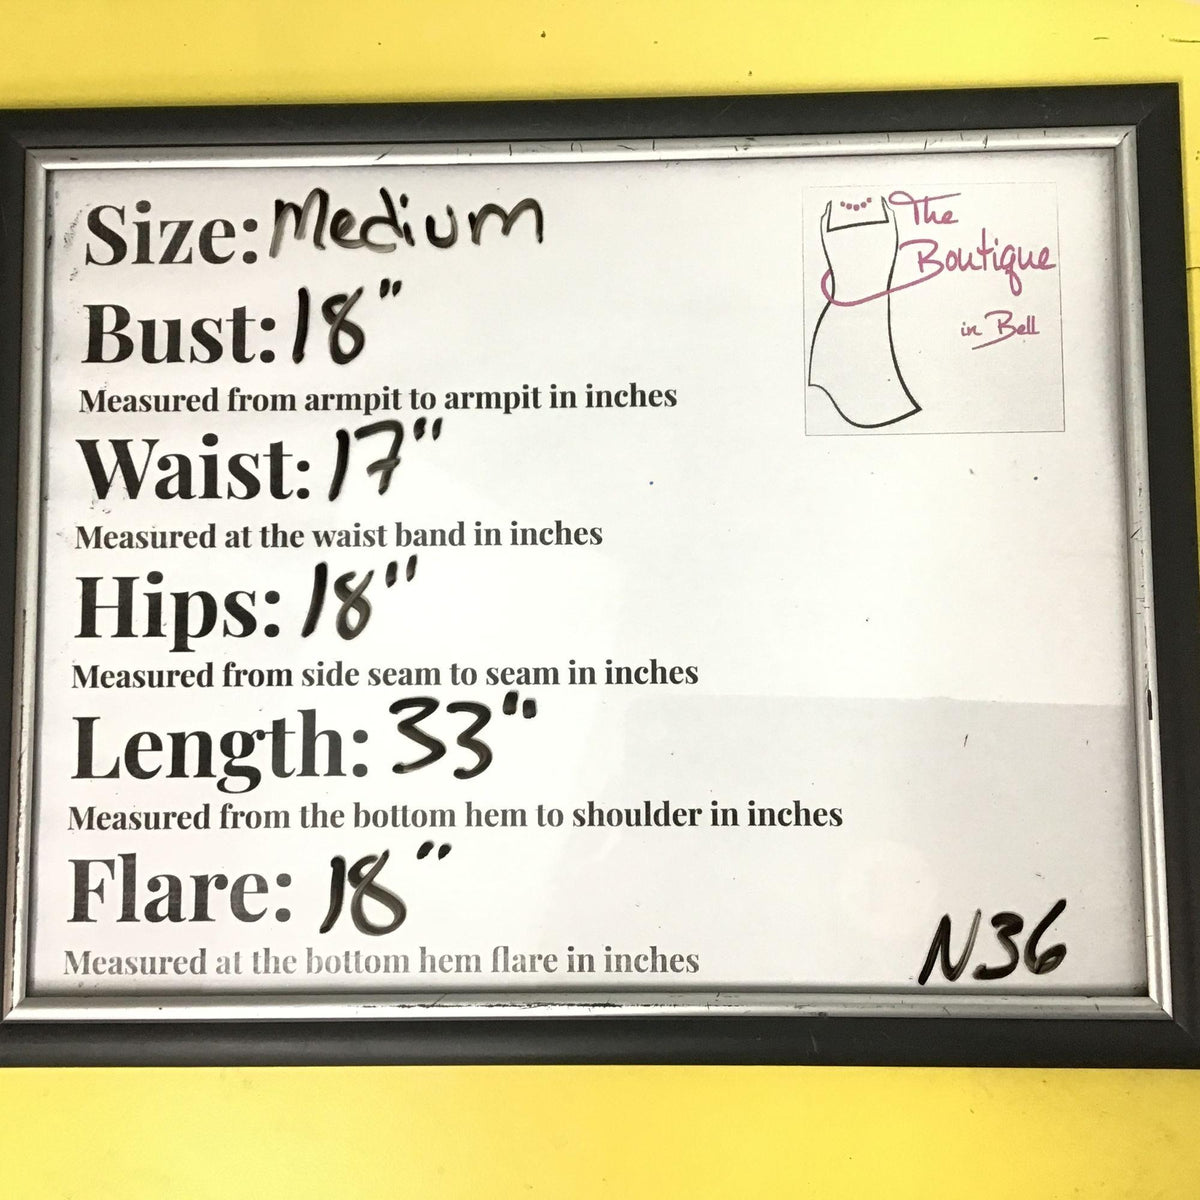 Size: Medium
Bust: 18"
Measured from armpit to armpit in inches
Waist: 17"
Measured at the waist band in inches
Hips: 18"
Measured from side seam to seam in inches
Length: 33"
Measured from the bottom hem to shoulder in inches
Flare: 18"
Measured at the bottom hem flare in inches
The
Boutique
in Bell
N36